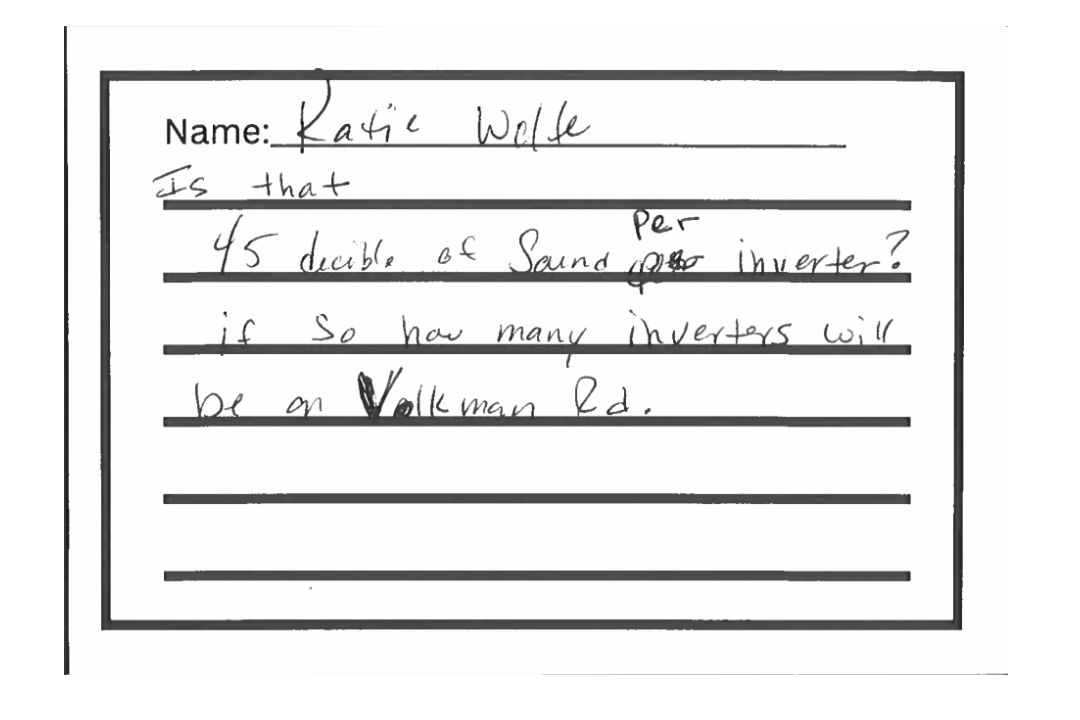 Name: Katie Wolfe
Is that
45 decible of Sound per inverter?
if so how many inverters will
be on Volkman Rd.